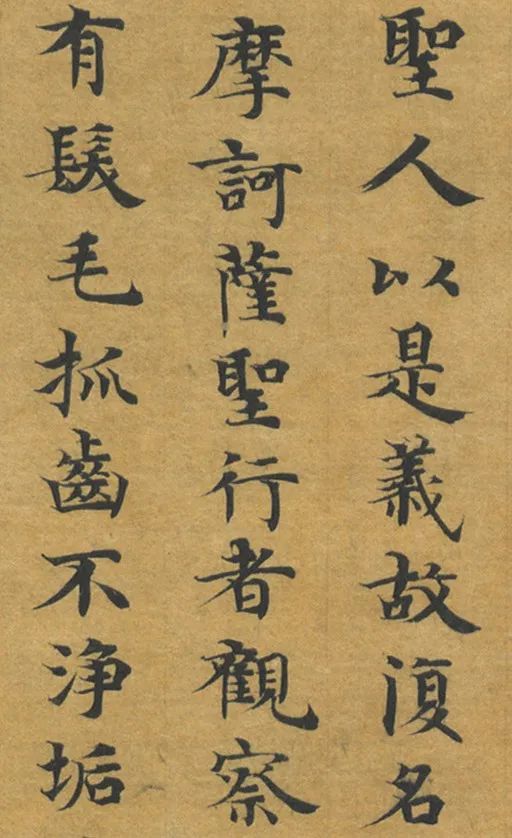 聖人以是義故復名
摩訶薩聖行者觀察
有髮毛抓齒不淨垢